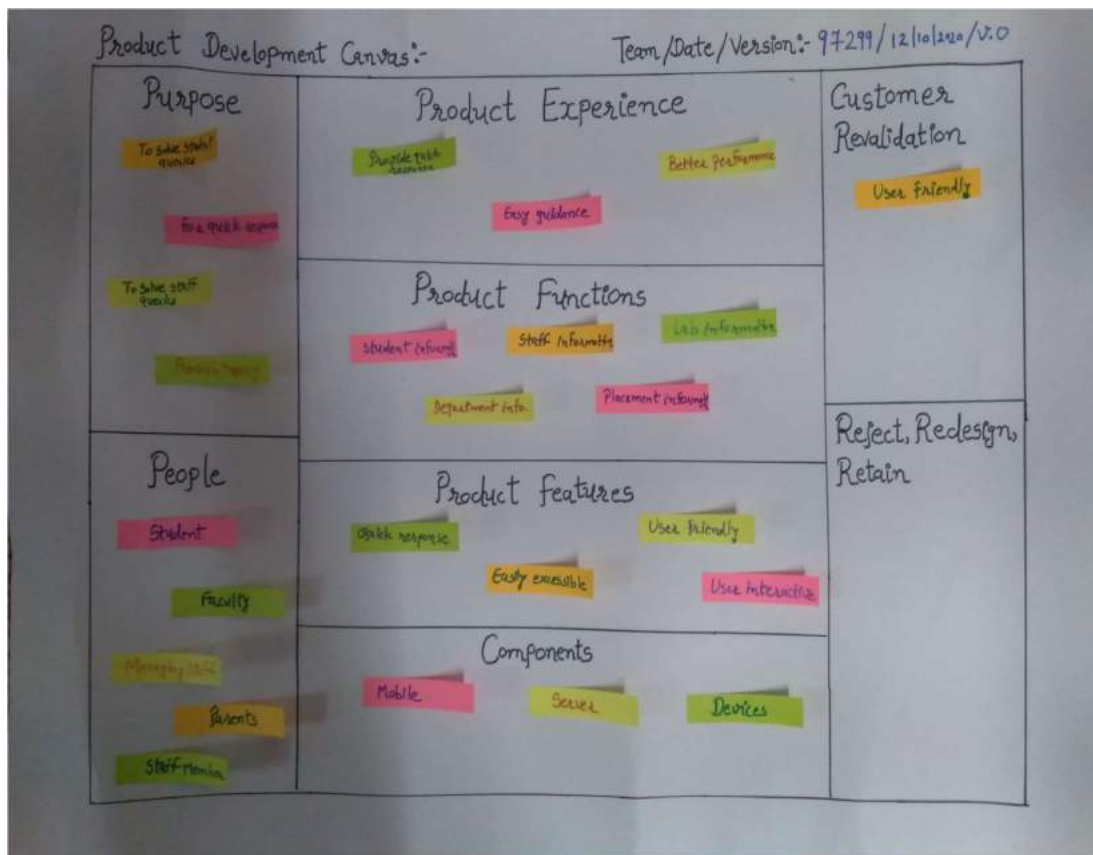 Product Development Canvas:-
Team/Date/Version:- 97299/12/10/2020/V.0
Purpose
To solve
queries
For quick
To solve staff
queries
People
Student
Faculty
Staff
Parents
Staff
Product Experience
Provide
Better performance
Easy guidance
Product Functions
Student inform
Staff informatin
Lab informatin
Department info.
Placement inform
Product features
Quick response
User friendly
Easily excessible
User interactive
Components
Mobile
Server
Devices
Customer
Revalidation
User friendly
Reject, Redesign,
Retain